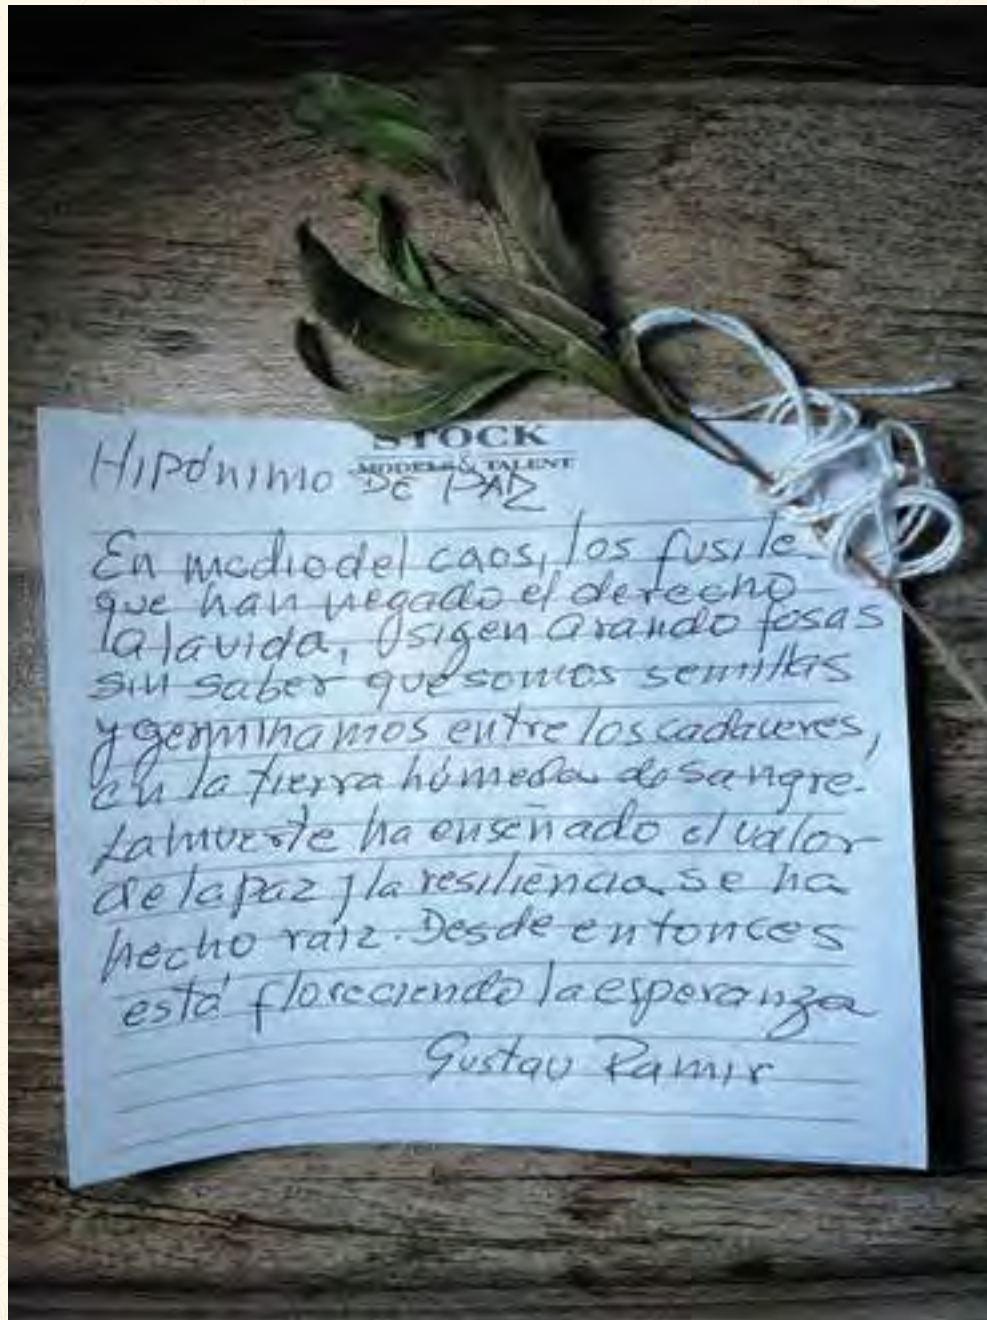 STOCK
MODELS & TALENT
HIPÓNIMO DE PAZ
En medio del caos, los fusile
que han negado el derecho
a la vida, sigen arando fosas
sin saber que somos semillas
y germinamos entre los cadaveres,
en la tierra húmeda de sangre.
La muerte ha enseñado el valor
de la paz y la resiliencia se ha
hecho raíz. Desde entonces
está floreciendo la esperanza
Gustav Ramir